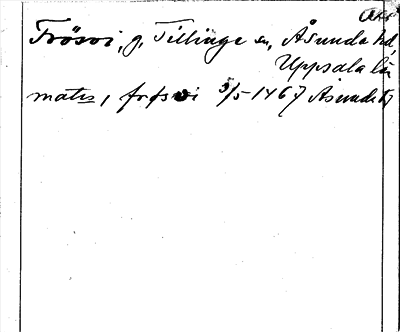 Frösvi, g, Tillinge sn, Åsunda hd,
Uppsala län
mats, frøsvi 5/5-1467 Åsunda